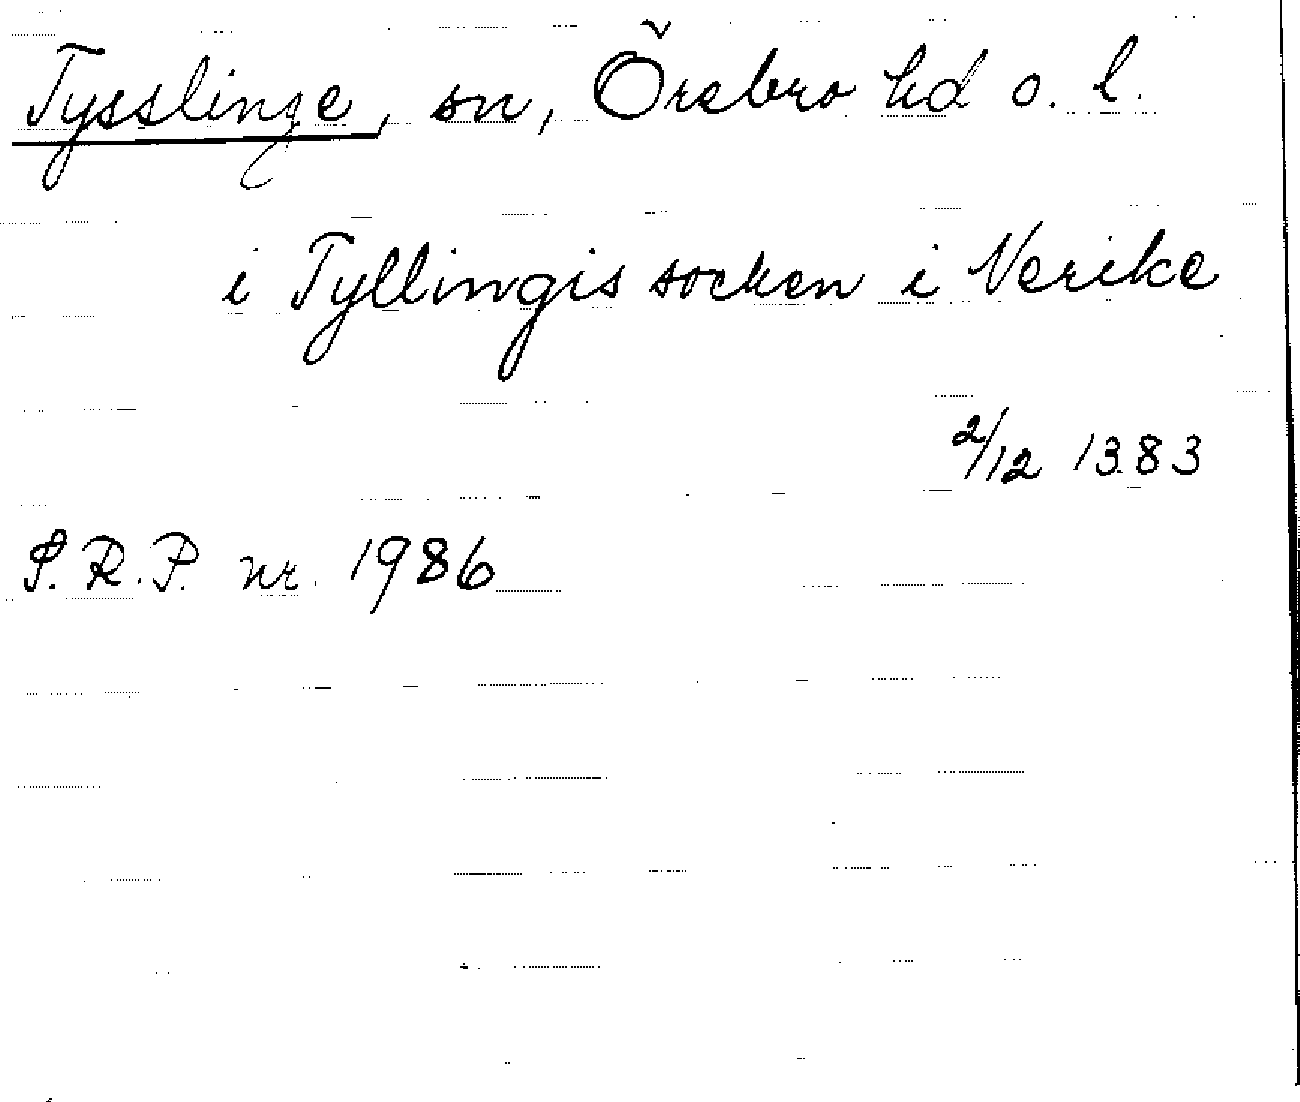 Tysslinge, sn, Örebro hd o. l.
i Tyllingis socken i Nerike
2/12 1383
S.R.P. nr. 1986